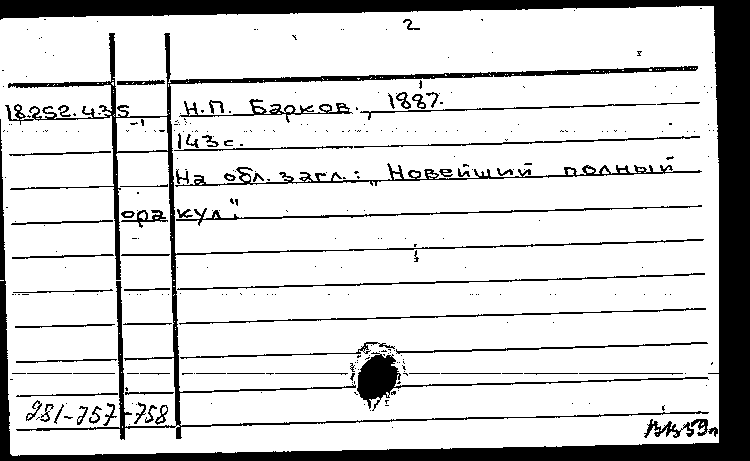 2
18.252.435 Н.П. Барков., 1887.
143с.
На обл. загл.: „Новейший полный
оракул".
281-757-758